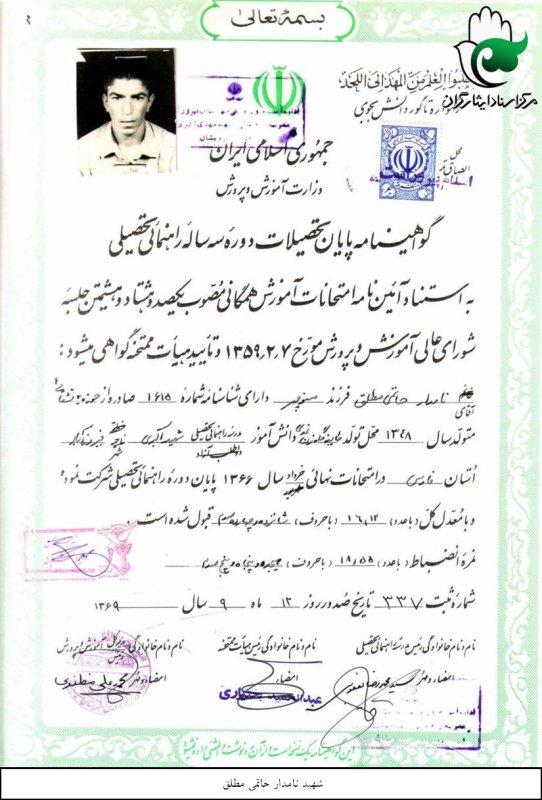 بسمه تعالی
اطلبوا العلم من المهد الی اللحد
زگهواره تا گور دانش بجوی
مرکز اسناد ایثارگران
جمهوری اسلامی ایران
وزارت آموزش و پرورش
محل الصاق تمبر
گواهینامه پایان تحصیلات دوره سه ساله راهنمائی تحصیلی
به استناد آئین نامه امتحانات آموزش همگانی مصوب یکصد و هشتاد و هشتمین جلسه
شورای عالی آموزش و پرورش مورخ ۱۳۵۹،۲،۷ و تأیید هیأت ممتحنه گواهی میشود :
آقای نامدار حاتمی مطلق فرزند منوچهر دارای شناسنامه شماره ۱۶۱۵ صادره از حوزه
متولد سال ۱۳۴۸ محل تولد دانش آموز مدرسه راهنمائی تحصیلی شهید
استان فارس در امتحانات نهائی خرداد سال ۱۳۶۶ پایان دوره راهنمائی تحصیلی شرکت نموده
و با معدل کل (با عدد) ۱۶,۱۴ (با حروف) شانزده و چهارده صدم قبول شده است .
نمره انضباط (با عدد) ۱۸,۵۵ (با حروف) هیجده و پنجاه و پنج صدم
شماره ثبت ۳۳۷ تاریخ صدور روز ۱۲ ماه ۹ سال ۱۳۶۹
نام و نام خانوادگی رئیس مدرسه راهنمائی تحصیلی
نام و نام خانوادگی رئیس هیأت ممتحنه
نام و نام خانوادگی آموزش و پرورش
امضاء و مهر
امضاء
عبدالحمید
امضاء و مهر
این گواهینامه یک نسخه است از آن رونوشت المثنی داده نمیشود
شهید نامدار حاتمی مطلق